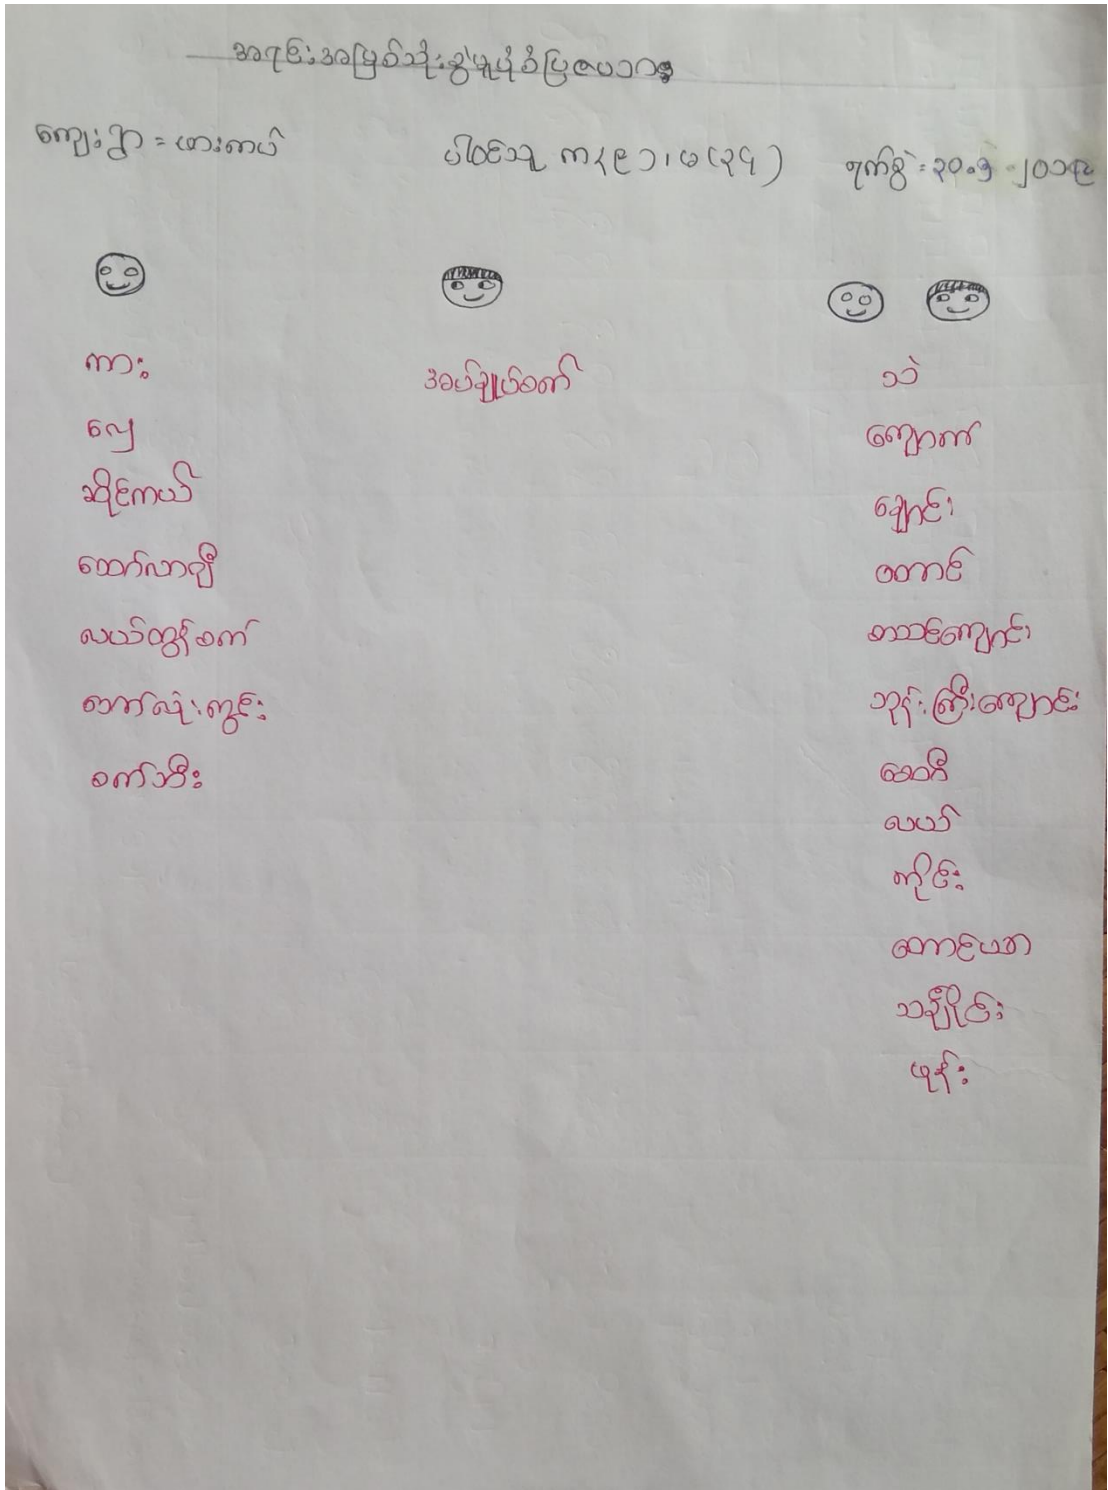 အရင်းအမြစ်သုံးစွဲမှုပုံစံပြဇယား
ကျေးရွာ = ဖားကပ်
ပါဝင်သူ ကျား ၁၊ မ (၃၄)
ရက်စွဲ = ၃၀.၅.၂၀၁၉
ကား
လှေ
ဆိုင်ကယ်
ထော်လာဂျီ
လယ်ထွန်စက်
စက်ဘီး
အပ်ချုပ်စက်
သဲ
ကျောက်
ချောင်း
တောင်
စာသင်ကျောင်း
ဘုန်းကြီးကျောင်း
စေတီ
လယ်
ကိုင်း
တောင်ယာ
သချိုင်း
ဖုန်း